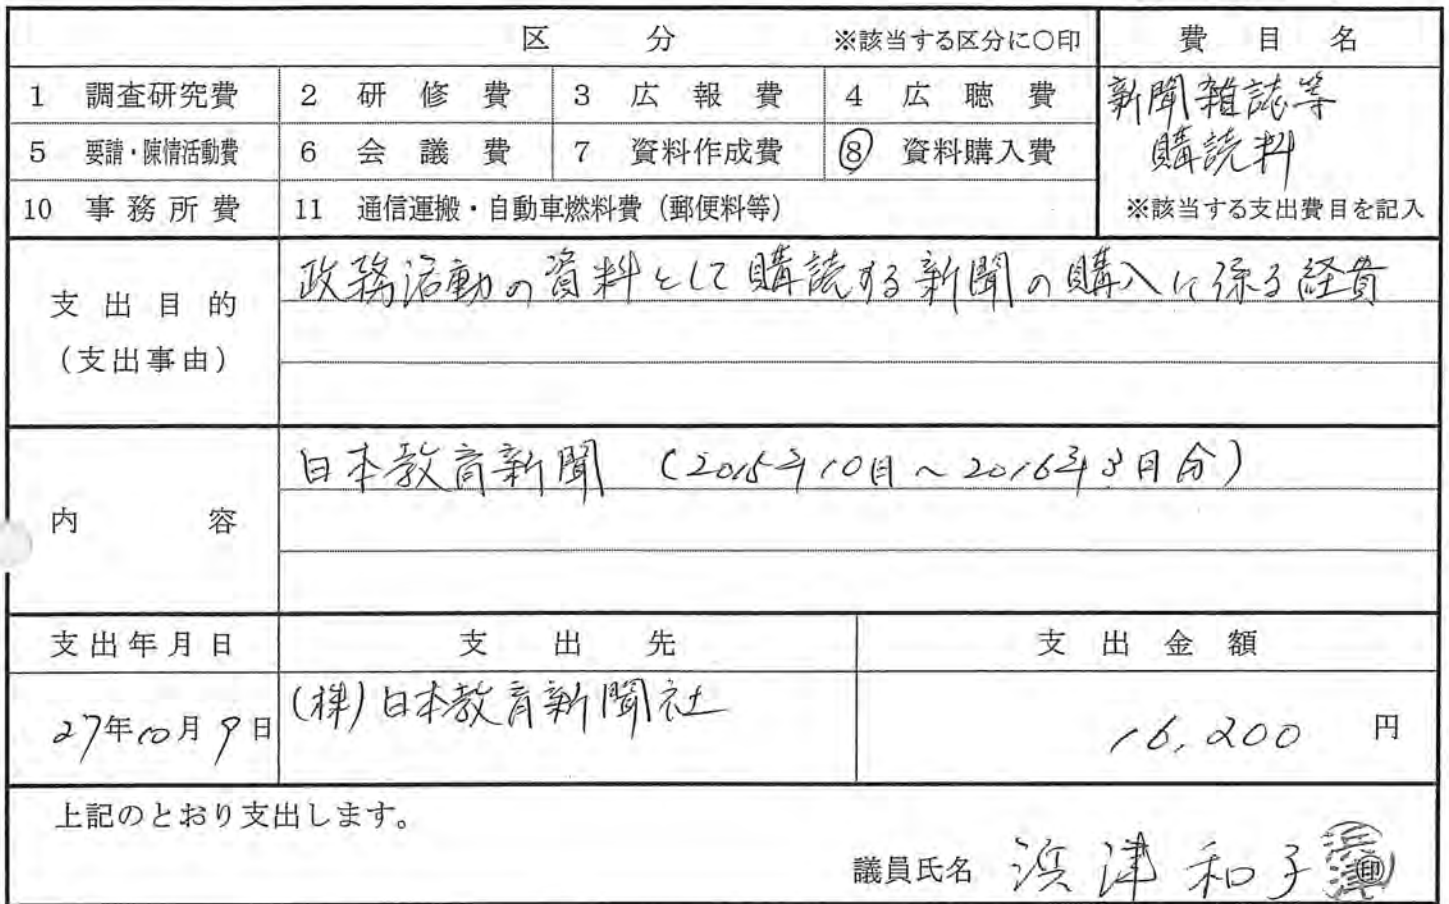 区 分 ※該当する区分に○印 費 目 名
1 調査研究費 2 研 修 費 3 広 報 費 4 広 聴 費
新聞雑誌等
5 要請・陳情活動費 6 会 議 費 7 資料作成費 8 資料購入費
購読料
10 事 務 所 費 11 通信運搬・自動車燃料費（郵便料等）
※該当する支出費目を記入
支 出 目 的
（支出事由）
政務活動の資料として購読する新聞の購入に係る経費
内 容
日本教育新聞 （2015年10月～2016年3月分）
支出年月日 支 出 先 支 出 金 額
27年10月9日 (株)日本教育新聞社 16,200 円
上記のとおり支出します。
議員氏名 浜津和子 浜津 印